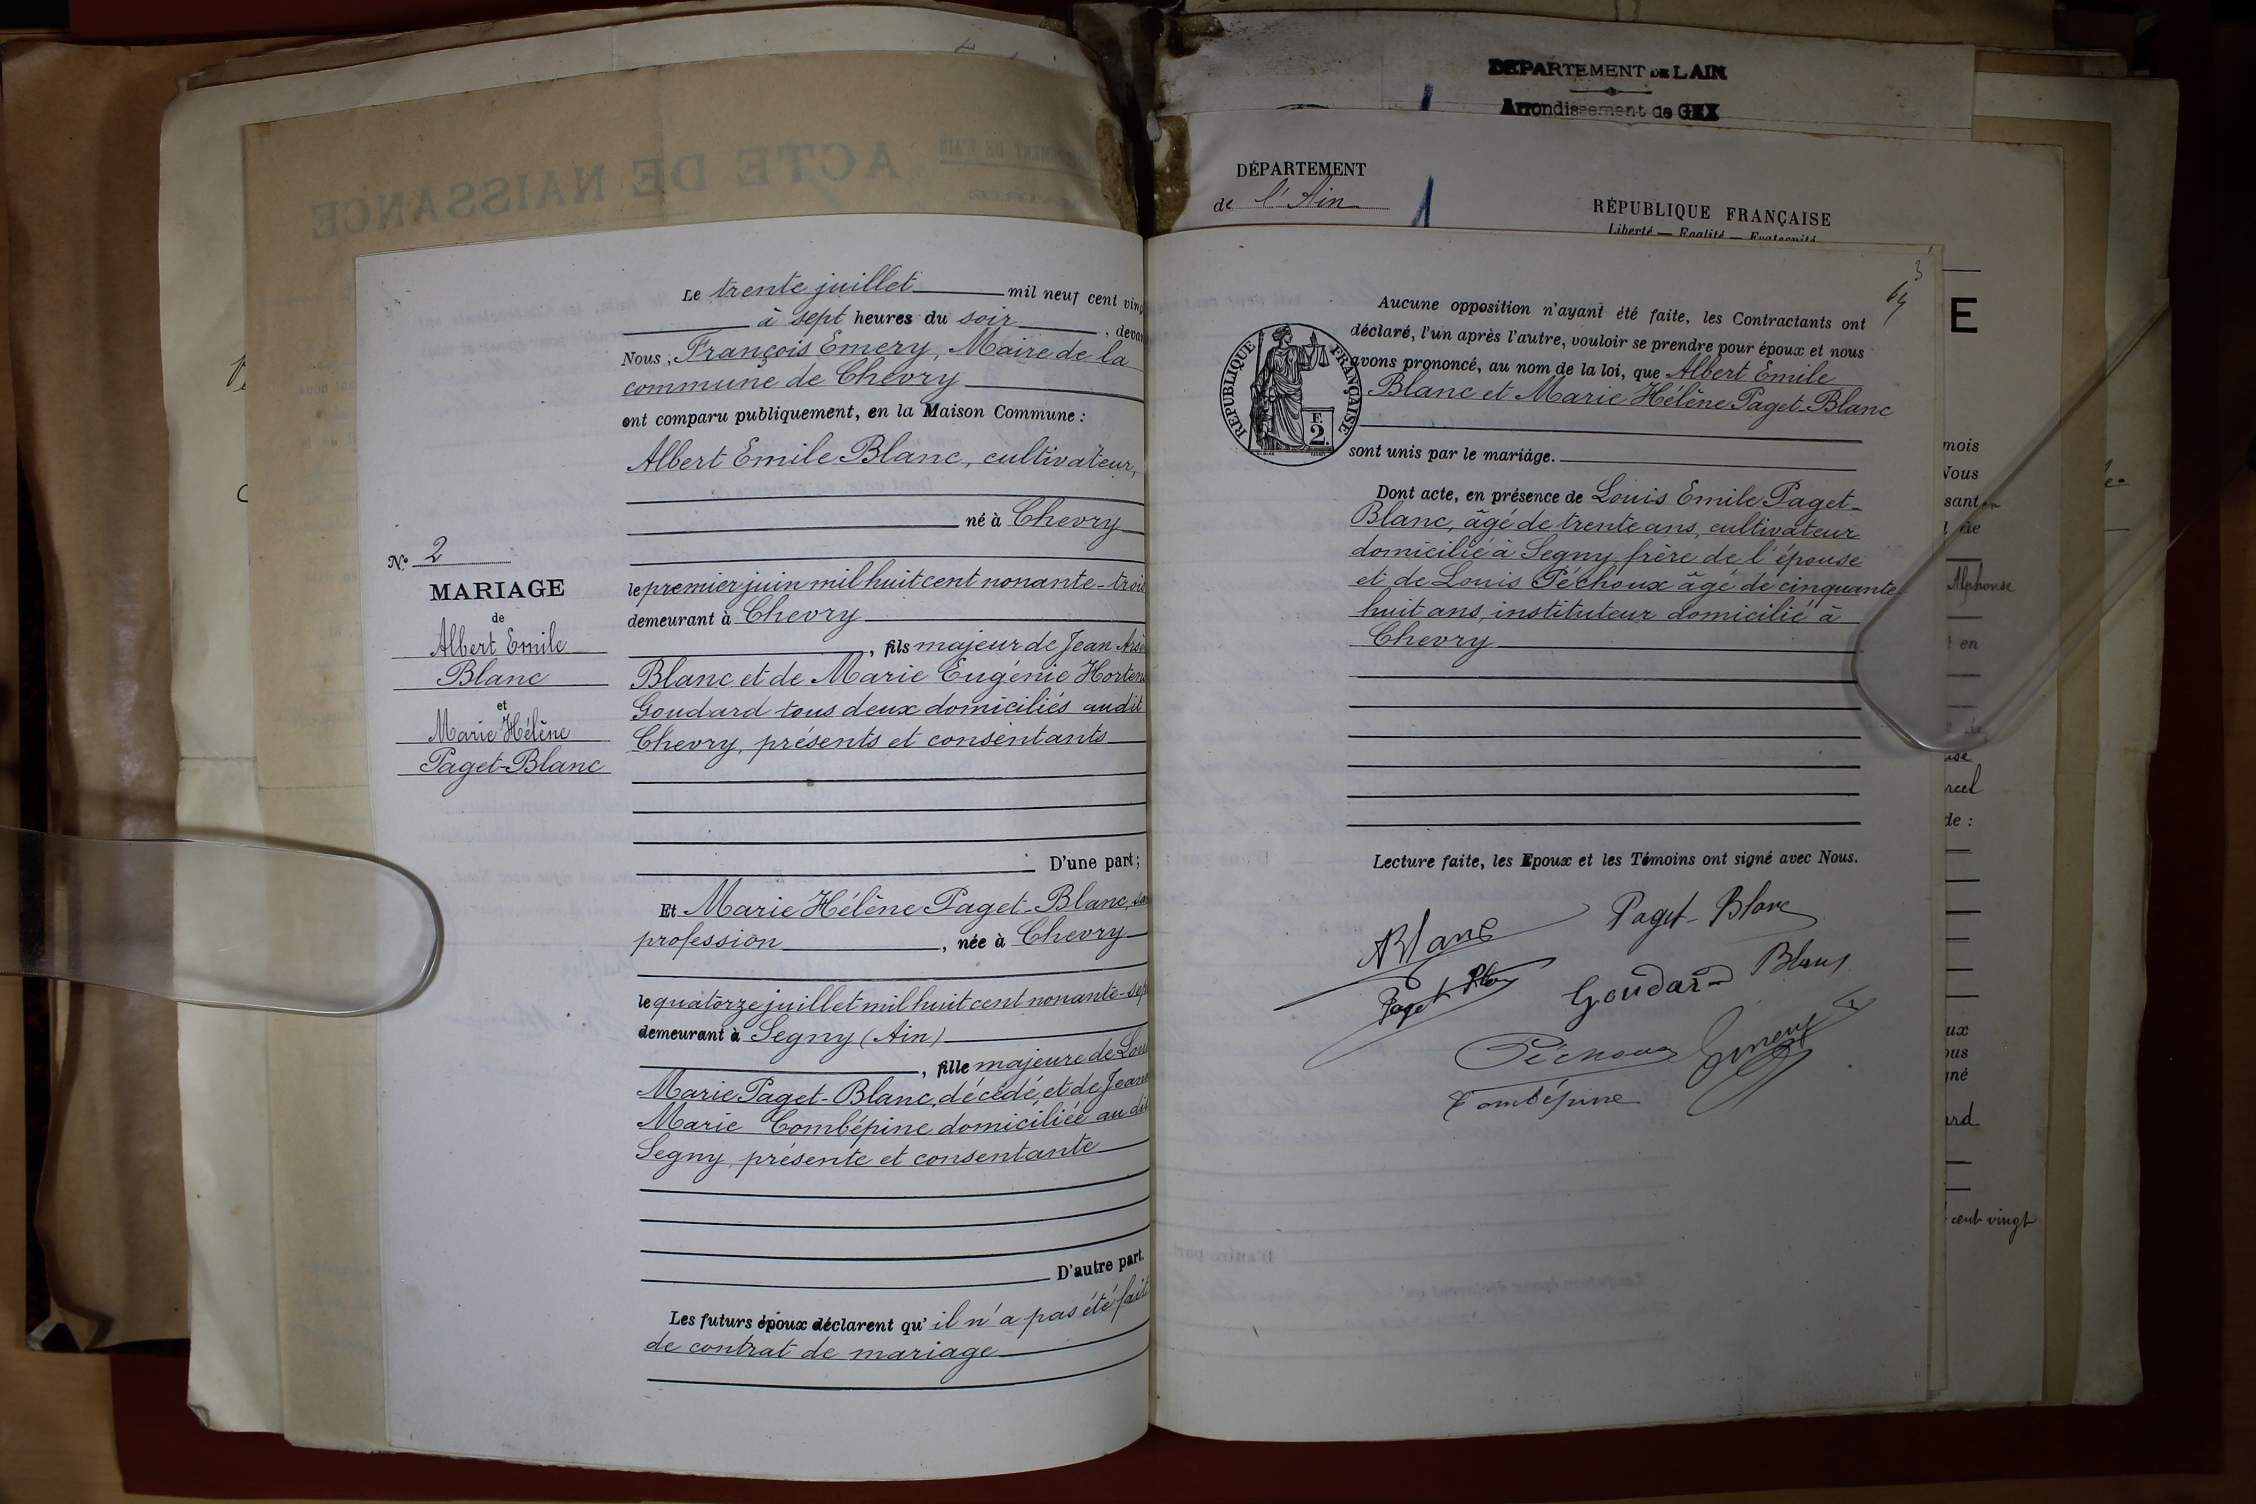 DÉPARTEMENT DE L'AIN
ACTE DE NAISSANCE
Le trente juillet mil neuf cent
à sept heures du soir
Nous, François Emery, Maire de la
commune de Chevry
ont comparu publiquement, en la Maison Commune :
Albert Emile Blanc, cultivateur,
né à Chevry
le premier juin mil huit cent nonante-trois
demeurant à Chevry
, fils majeur de Jean
Blanc et de Marie Eugénie
Goudard tous deux domiciliés audit
Chevry, présents et consentants
D'une part ;
Et Marie Hélène Paget-Blanc,
profession , née à Chevry
le quatorze juillet mil huit cent
demeurant à Segny (Ain)
, fille majeure de
Marie Paget-Blanc, décédé, et de
Marie Combépine domiciliée au dit
Segny, présente et consentante
D'autre part.
Les futurs époux déclarent qu'il n'a pas été fait
de contrat de mariage
N° 2
MARIAGE
de
Albert Emile
Blanc
et
Marie Hélène
Paget-Blanc
DEPARTEMENT DE L'AIN
Arrondissement de GEX
DÉPARTEMENT
de l'Ain
RÉPUBLIQUE FRANÇAISE
Liberté — Egalité — Fraternité
1
E
Aucune opposition n'ayant été faite, les Contractants ont
déclaré, l'un après l'autre, vouloir se prendre pour époux et nous
avons prononcé, au nom de la loi, que Albert Emile
Blanc et Marie Hélène Paget-Blanc
sont unis par le mariage.
REPUBLIQUE FRANÇAISE
F.
2.
Dont acte, en présence de Louis Emile Paget-
Blanc, âgé de trente ans, cultivateur
domicilié à Segny, frère de l'épouse
et de Louis Péchoux âgé de cinquante
huit ans, instituteur domicilié à
Chevry
Lecture faite, les Epoux et les Témoins ont signé avec Nous.
ABlanc
Paget-Blanc
Paget-Blanc
Goudard
Blanc
Péchoux
Emery
Combépine
mois
Nous
Alphonse
en
de :
gné
cent vingt